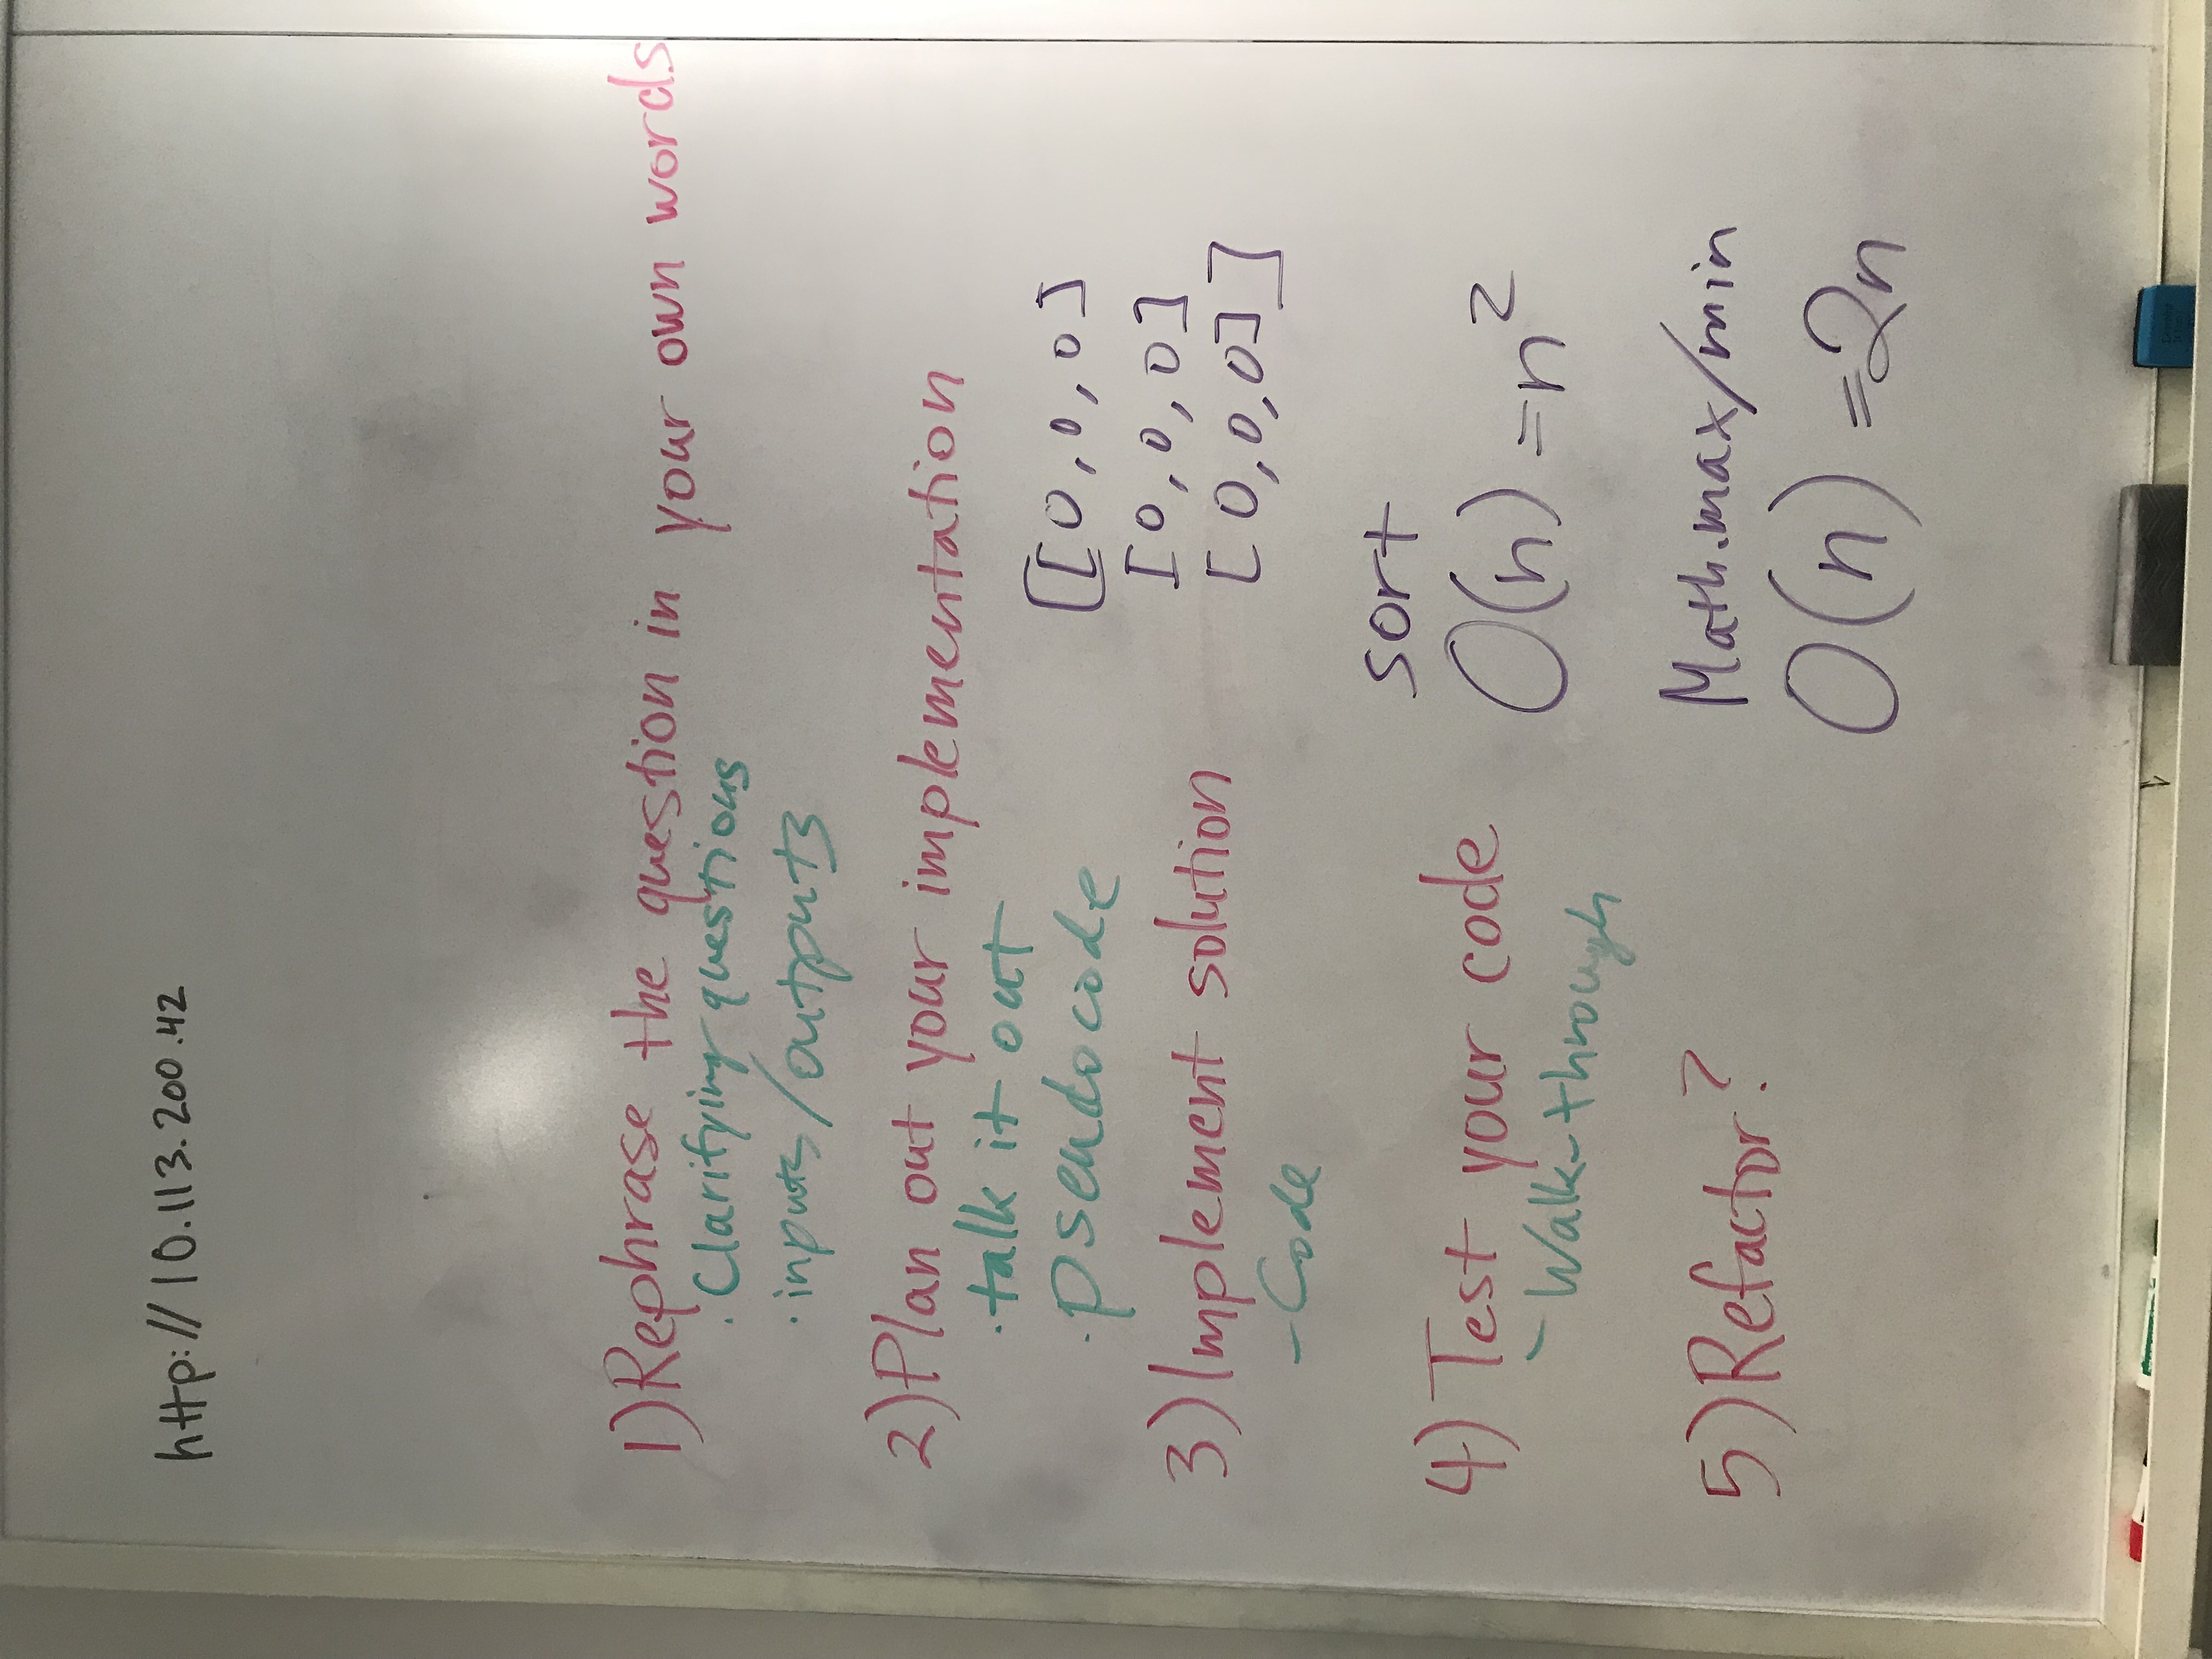 http://10.113.200.42
1) Rephrase the question in your own words
. Clarifying questions
. inputs/outputs
2) Plan out your implementation
. talk it out
. pseudocode
3) Implement solution
- Code
4) Test your code
- Walk-through
5) Refactor?
[[0,0,0]
[0,0,0]
[0,0,0]]
sort
O(n) = n²
Math.max/min
O(n) = 2n